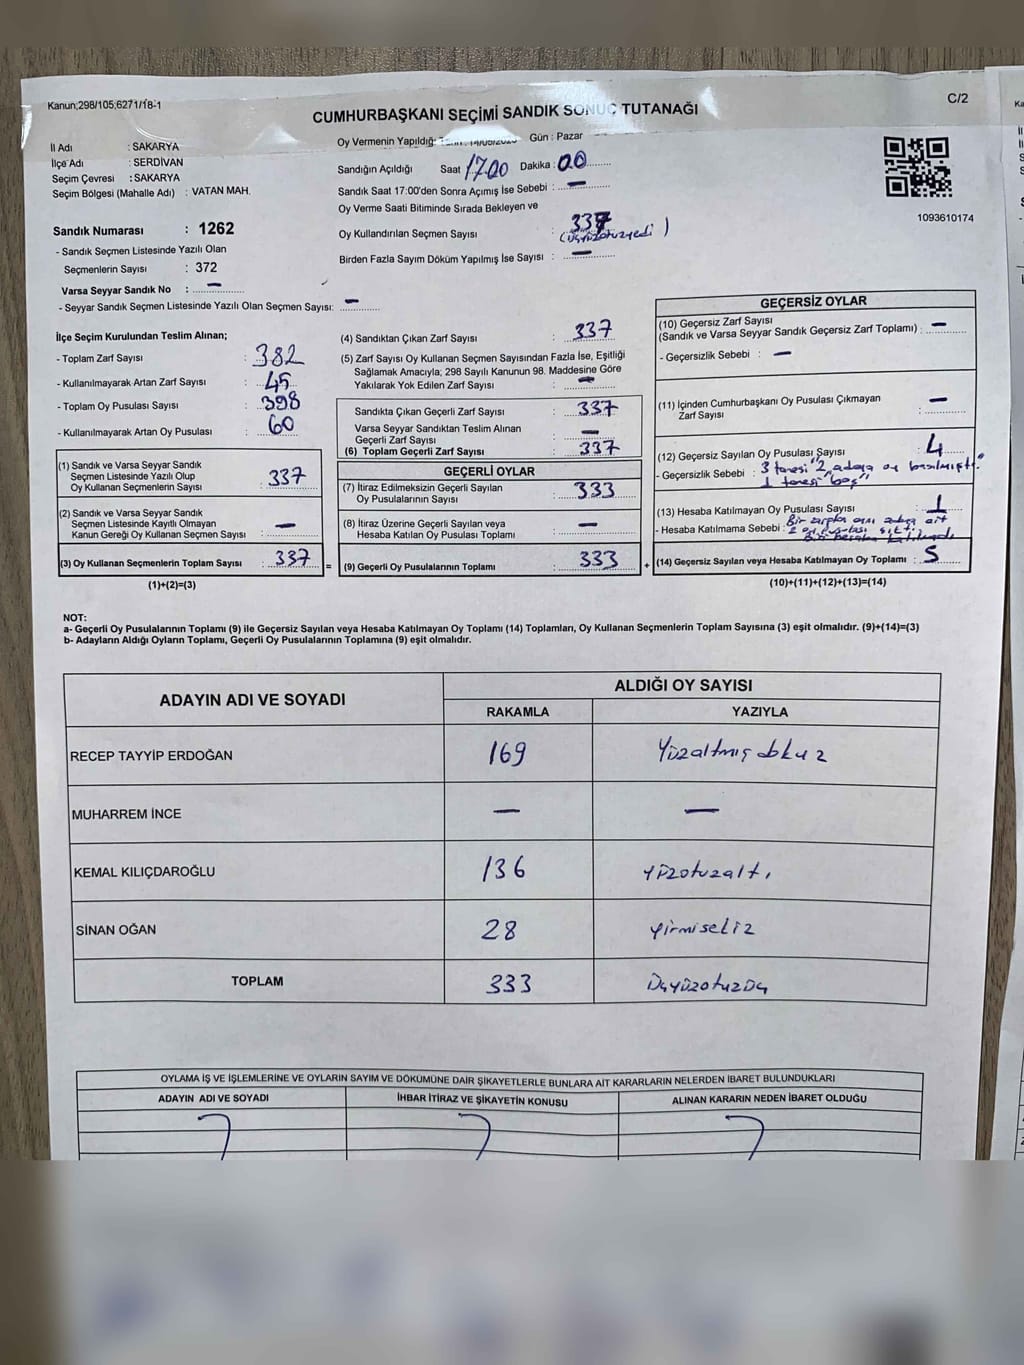 Kanun;298/105;6271/18-1
C/2
CUMHURBAŞKANI SEÇİMİ SANDIK SONUÇ TUTANAĞI
İl Adı : SAKARYA
İlçe Adı : SERDİVAN
Seçim Çevresi : SAKARYA
Seçim Bölgesi (Mahalle Adı) : VATAN MAH.
Sandık Numarası : 1262
- Sandık Seçmen Listesinde Yazılı Olan
Seçmenlerin Sayısı : 372
Varsa Seyyar Sandık No : —
- Seyyar Sandık Seçmen Listesinde Yazılı Olan Seçmen Sayısı: —
Oy Vermenin Yapıldığı Gün : Pazar
Sandığın Açıldığı Saat 17.00 Dakika : 00
Sandık Saat 17:00'den Sonra Açımış İse Sebebi : —
Oy Verme Saati Bitiminde Sırada Bekleyen ve
Oy Kullandırılan Seçmen Sayısı : 337
(üçyüzotuzyedi)
Birden Fazla Sayım Döküm Yapılmış İse Sayısı : —
1093610174
İlçe Seçim Kurulundan Teslim Alınan;
- Toplam Zarf Sayısı : 382
- Kullanılmayarak Artan Zarf Sayısı : 45
- Toplam Oy Pusulası Sayısı : 398
- Kullanılmayarak Artan Oy Pusulası : 60
(1) Sandık ve Varsa Seyyar Sandık
Seçmen Listesinde Yazılı Olup
Oy Kullanan Seçmenlerin Sayısı : 337
(2) Sandık ve Varsa Seyyar Sandık
Seçmen Listesinde Kayıtlı Olmayan
Kanun Gereği Oy Kullanan Seçmen Sayısı : —
(3) Oy Kullanan Seçmenlerin Toplam Sayısı : 337
(1)+(2)=(3)
(4) Sandıktan Çıkan Zarf Sayısı : 337
(5) Zarf Sayısı Oy Kullanan Seçmen Sayısından Fazla İse, Eşitliği
Sağlamak Amacıyla; 298 Sayılı Kanunun 98. Maddesine Göre
Yakılarak Yok Edilen Zarf Sayısı : —
Sandıkta Çıkan Geçerli Zarf Sayısı : 337
Varsa Seyyar Sandıktan Teslim Alınan
Geçerli Zarf Sayısı : —
(6) Toplam Geçerli Zarf Sayısı : 337
GEÇERLİ OYLAR
(7) İtiraz Edilmeksizin Geçerli Sayılan
Oy Pusulalarının Sayısı : 333
(8) İtiraz Üzerine Geçerli Sayılan veya
Hesaba Katılan Oy Pusulası Toplamı : —
= (9) Geçerli Oy Pusulalarının Toplamı : 333
GEÇERSİZ OYLAR
(10) Geçersiz Zarf Sayısı
(Sandık ve Varsa Seyyar Sandık Geçersiz Zarf Toplamı) : —
- Geçersizlik Sebebi : —
(11) İçinden Cumhurbaşkanı Oy Pusulası Çıkmayan
Zarf Sayısı : —
(12) Geçersiz Sayılan Oy Pusulası Sayısı : 4
- Geçersizlik Sebebi : 3 tanesi "2 adaya oy basılmıştı"
1 tanesi "boş"
(13) Hesaba Katılmayan Oy Pusulası Sayısı : 1
Bir zarftan aynı adaya ait
- Hesaba Katılmama Sebebi : 2 oy pusulası çıktı.
+ (14) Geçersiz Sayılan veya Hesaba Katılmayan Oy Toplamı : 5
(10)+(11)+(12)+(13)=(14)
NOT:
a- Geçerli Oy Pusulalarının Toplamı (9) ile Geçersiz Sayılan veya Hesaba Katılmayan Oy Toplamı (14) Toplamları, Oy Kullanan Seçmenlerin Toplam Sayısına (3) eşit olmalıdır. (9)+(14)=(3)
b- Adayların Aldığı Oyların Toplamı, Geçerli Oy Pusulalarının Toplamına (9) eşit olmalıdır.
ADAYIN ADI VE SOYADI
ALDIĞI OY SAYISI
RAKAMLA YAZIYLA
RECEP TAYYİP ERDOĞAN 169 Yüzaltmışdokuz
MUHARREM İNCE — —
KEMAL KILIÇDAROĞLU 136 Yüzotuzaltı
SİNAN OĞAN 28 yirmisekiz
TOPLAM 333 Üçyüzotuzüç
OYLAMA İŞ VE İŞLEMLERİNE VE OYLARIN SAYIM VE DÖKÜMÜNE DAİR ŞİKAYETLERLE BUNLARA AİT KARARLARIN NELERDEN İBARET BULUNDUKLARI
ADAYIN ADI VE SOYADI İHBAR İTİRAZ VE ŞİKAYETİN KONUSU ALINAN KARARIN NEDEN İBARET OLDUĞU